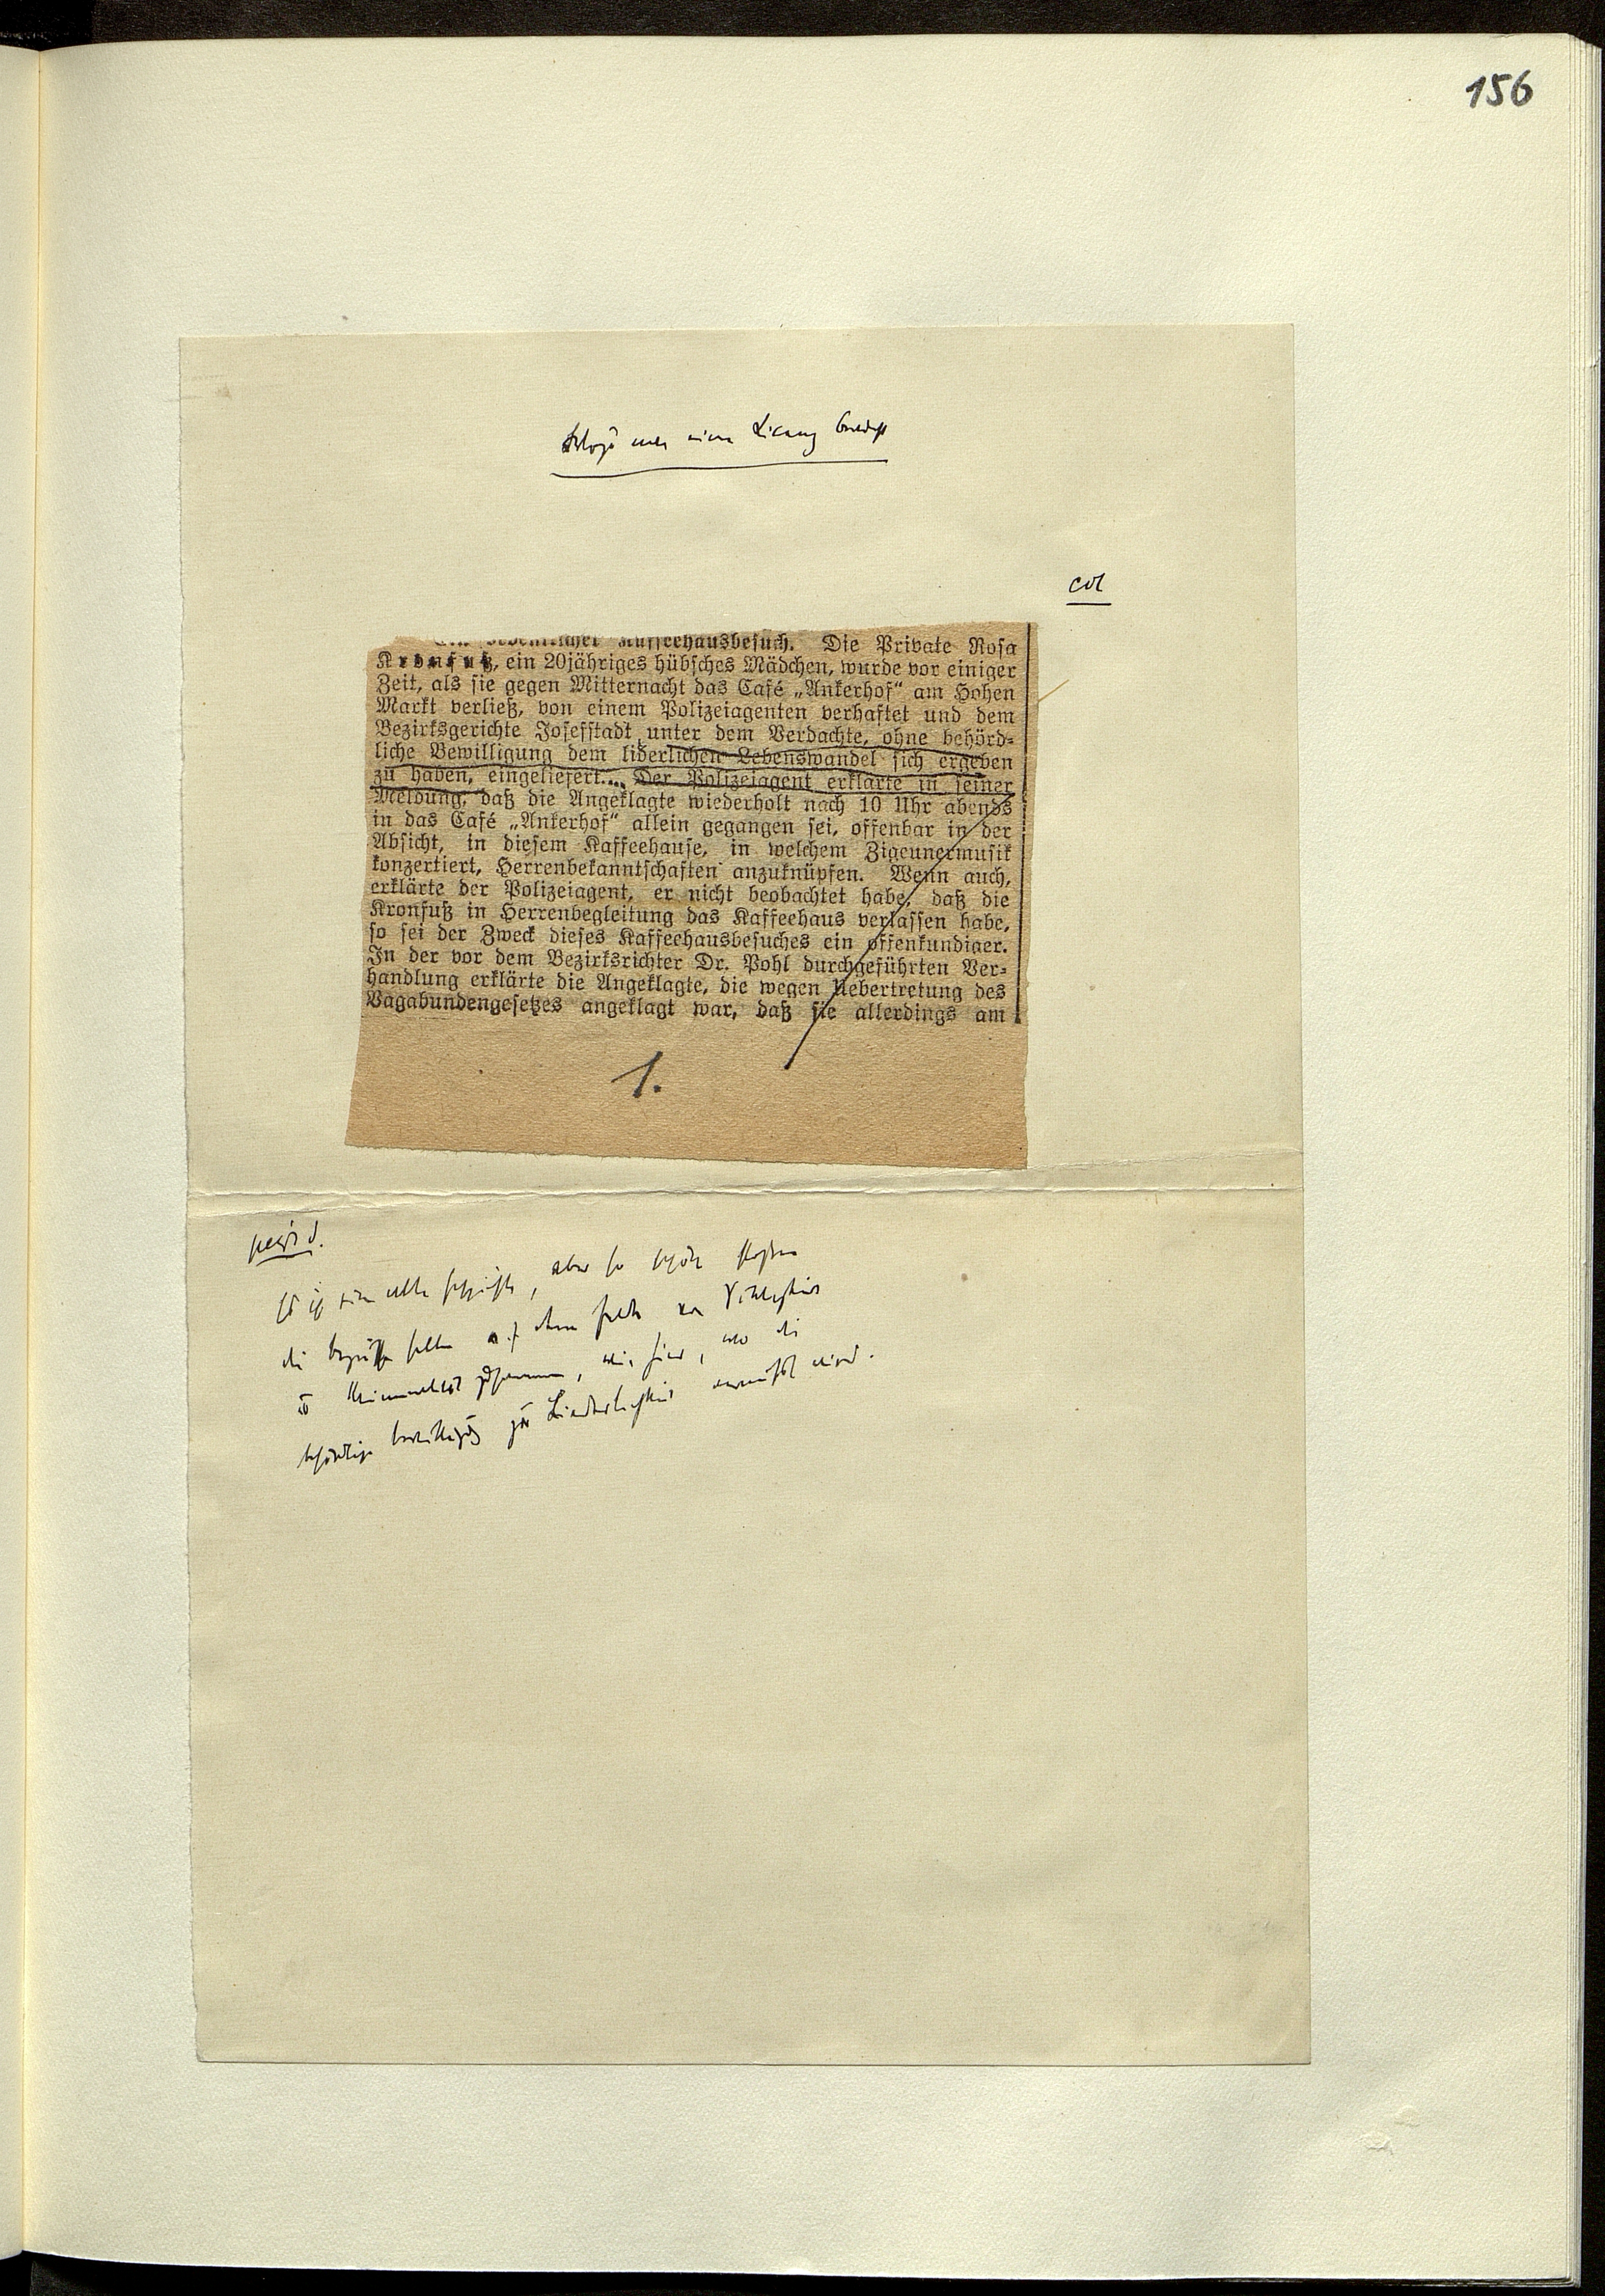 156
col
Kaffeehausbesuch. Die Private Rosa
Kronfuß, ein 20jähriges hübsches Mädchen, wurde vor einiger
Zeit, als sie gegen Mitternacht das Café „Ankerhof“ am Hohen
Markt verließ, von einem Polizeiagenten verhaftet und dem
Bezirksgerichte Josefstadt unter dem Verdachte, ohne behörd-
liche Bewilligung dem liderlichen Lebenswandel sich ergeben
zu haben, eingeliefert... Der Polizeiagent erklärte in seiner
Meldung, daß die Angeklagte wiederholt nach 10 Uhr abends
in das Café „Ankerhof“ allein gegangen sei, offenbar in der
Absicht, in diesem Kaffeehause, in welchem Zigeunermusik
konzertiert, Herrenbekanntschaften anzuknüpfen. Wenn auch,
erklärte der Polizeiagent, er nicht beobachtet habe, daß die
Kronfuß in Herrenbegleitung das Kaffeehaus verlassen habe,
so sei der Zweck dieses Kaffeehausbesuches ein offenkundiger.
In der vor dem Bezirksrichter Dr. Pohl durchgeführten Ver-
handlung erklärte die Angeklagte, die wegen Uebertretung des
Vagabundengesetzes angeklagt war, daß sie allerdings am
1.
Es ist eine alte Geschichte, aber so schön stoßen
die Begriffe selten auf dem Felde von Sittlichkeit
u Kriminalität zusammen, wie hier, wo die
behördliche Bewilligung zur Liederlichkeit vermißt wird.